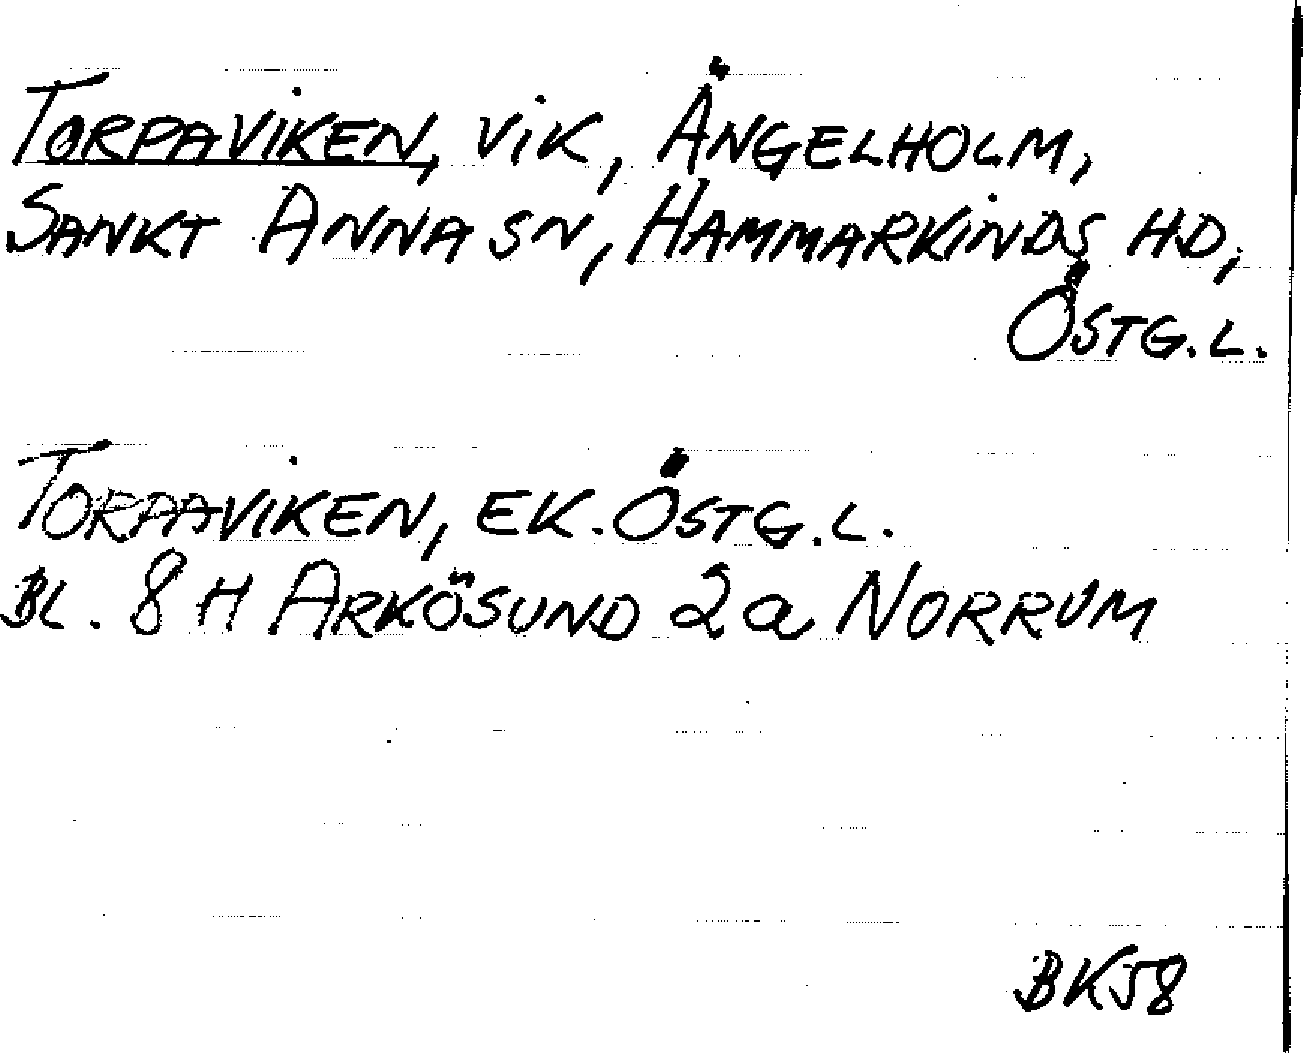 TORPAVIKEN, VIK, ÄNGELHOLM,
SANKT ANNA SN, HAMMARKINDS HD,
ÖSTG. L.
TORPAVIKEN, EK. ÖSTG. L.
BL. 8 H ARKÖSUND 2a NORRUM
BK58